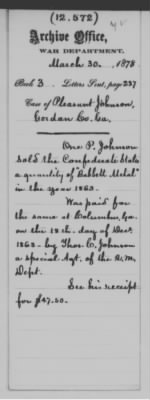 (12.572)
Archive Office,
WAR DEPARTMENT.
March 30, 1878
Book 3 Letters Sent, page 237
Case of Pleasant Johnson,
Gordan Co. Ga.
One P. Johnson
sold the Confederate States
a quantity of "Babbett Metal"
in the year 1863.
Was paid for
the same at Columbus, Ga.
on the 18th. day of Decr.
1863 - by Thos. C. Johnson
a special Agt. of the Q.M.
Dept.
See his receipt
for $47.50.